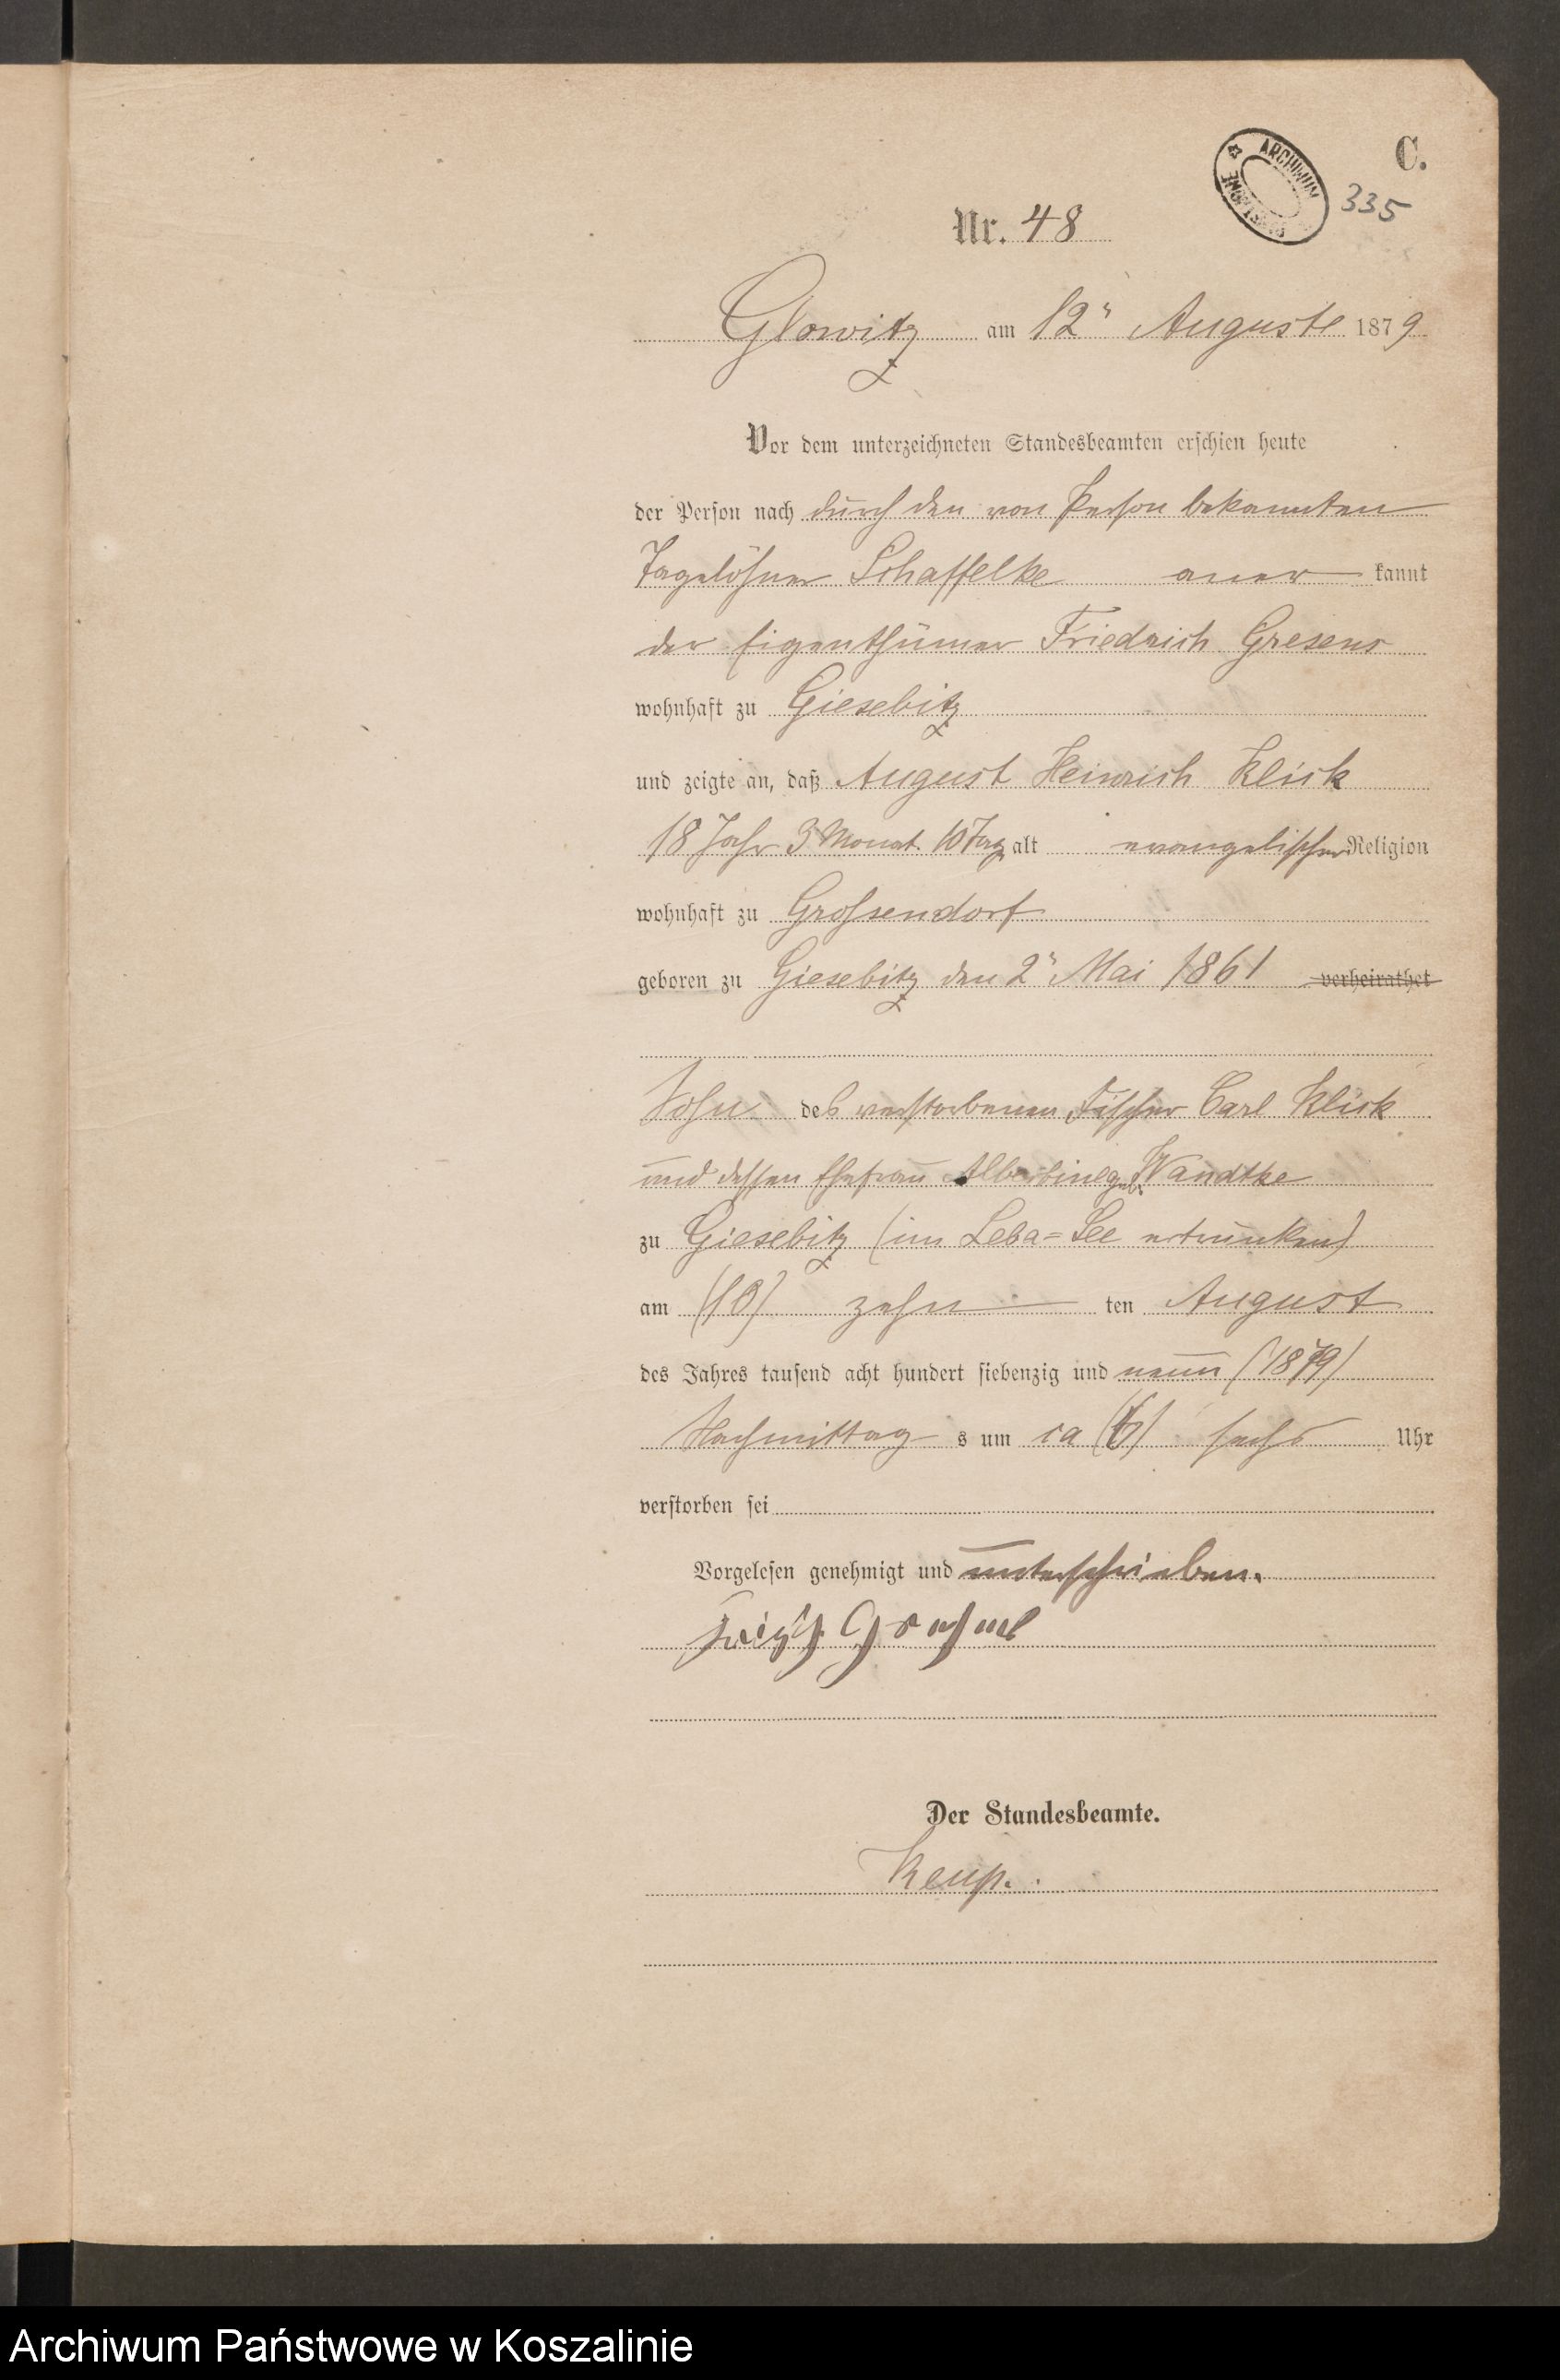 C.
ARCHIWUM
335
Nr. 48
Glowitz am 12" Auguste 1879
Vor dem unterzeichneten Standesbeamten erschien heute
der Person nach durch den von Person bekannten
Tagelöhner Schaffelke aner kannt
der Eigenthümer Friedrich Gresens
wohnhaft zu Giesebitz
und zeigte an, daß August Heinrich Klick
18 Jahr 3 Monat. 10 Tag alt evangelischer Religion
wohnhaft zu Grossendorf
geboren zu Giesebitz den 2" Mai 1861 verheirathet
Sohn des verstorbenen Fischer Carl Klick
und dessen Ehefrau Albertine geb. Wandtke
zu Giesebitz (im Leba=See ertrunken)
am (10) zehn ten August
des Jahres tausend acht hundert siebenzig und neun (1879)
Nachmittag s um ca (6) sechs Uhr
verstorben sei
Vorgelesen genehmigt und unterschrieben.
Gresens
Der Standesbeamte.
Keup.
Archiwum Państwowe w Koszalinie